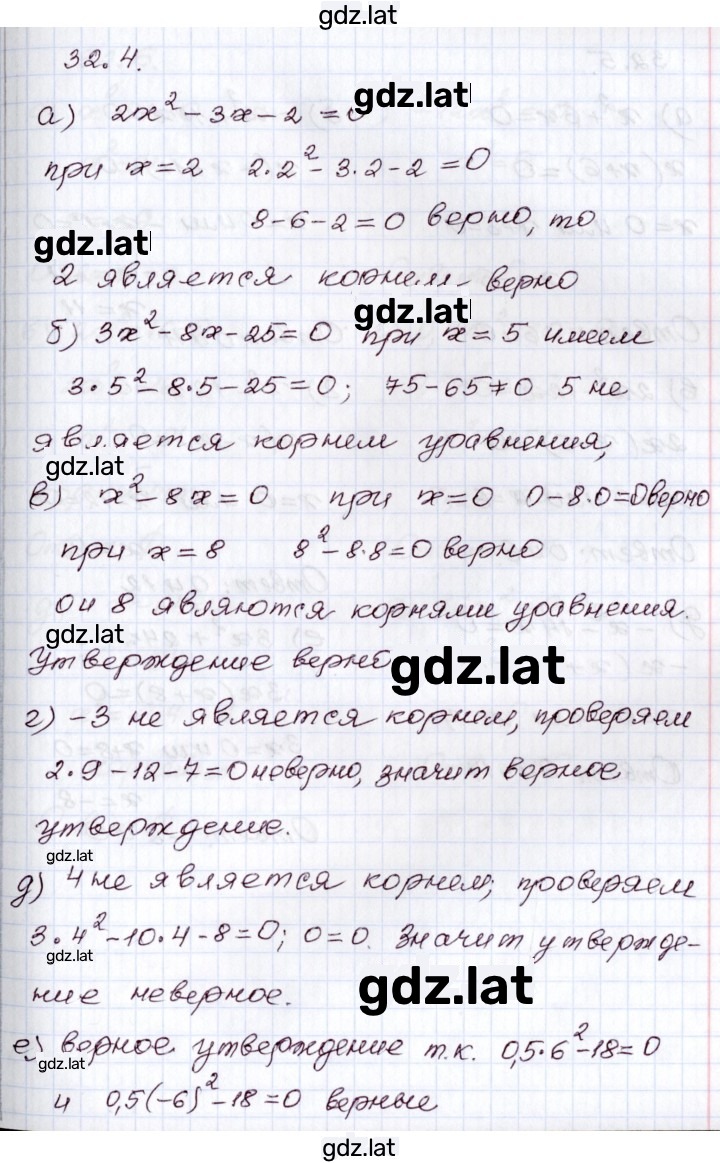 gdz.lat
32.4.
а) 2x² - 3x - 2 = 0 gdz.lat
при x = 2 2·2² - 3·2 - 2 = 0
8 - 6 - 2 = 0 верно, то
gdz.lat
2 является корнем - верно
gdz.lat
б) 3x² - 8x - 25 = 0 при x = 5 имеем
3·5² - 8·5 - 25 = 0; 75 - 65 ≠ 0 5 не
является корнем уравнения,
gdz.lat
в) x² - 8x = 0 при x = 0 0 - 8·0 = 0 верно
при x = 8 8² - 8·8 = 0 верно
0 и 8 являются корнями уравнения.
gdz.lat
Утверждение верно gdz.lat
г) -3 не является корнем, проверяем
2·9 - 12 - 7 = 0 неверно, значит верное
утверждение.
gdz.lat
д) 4 не является корнем; проверяем
3·4² - 10·4 - 8 = 0; 0 = 0. Значит утвержде-
gdz.lat
ние неверное. gdz.lat
е) верное утверждение т.к. 0,5·6² - 18 = 0
gdz.lat
и 0,5(-6)² - 18 = 0 верные
gdz.lat